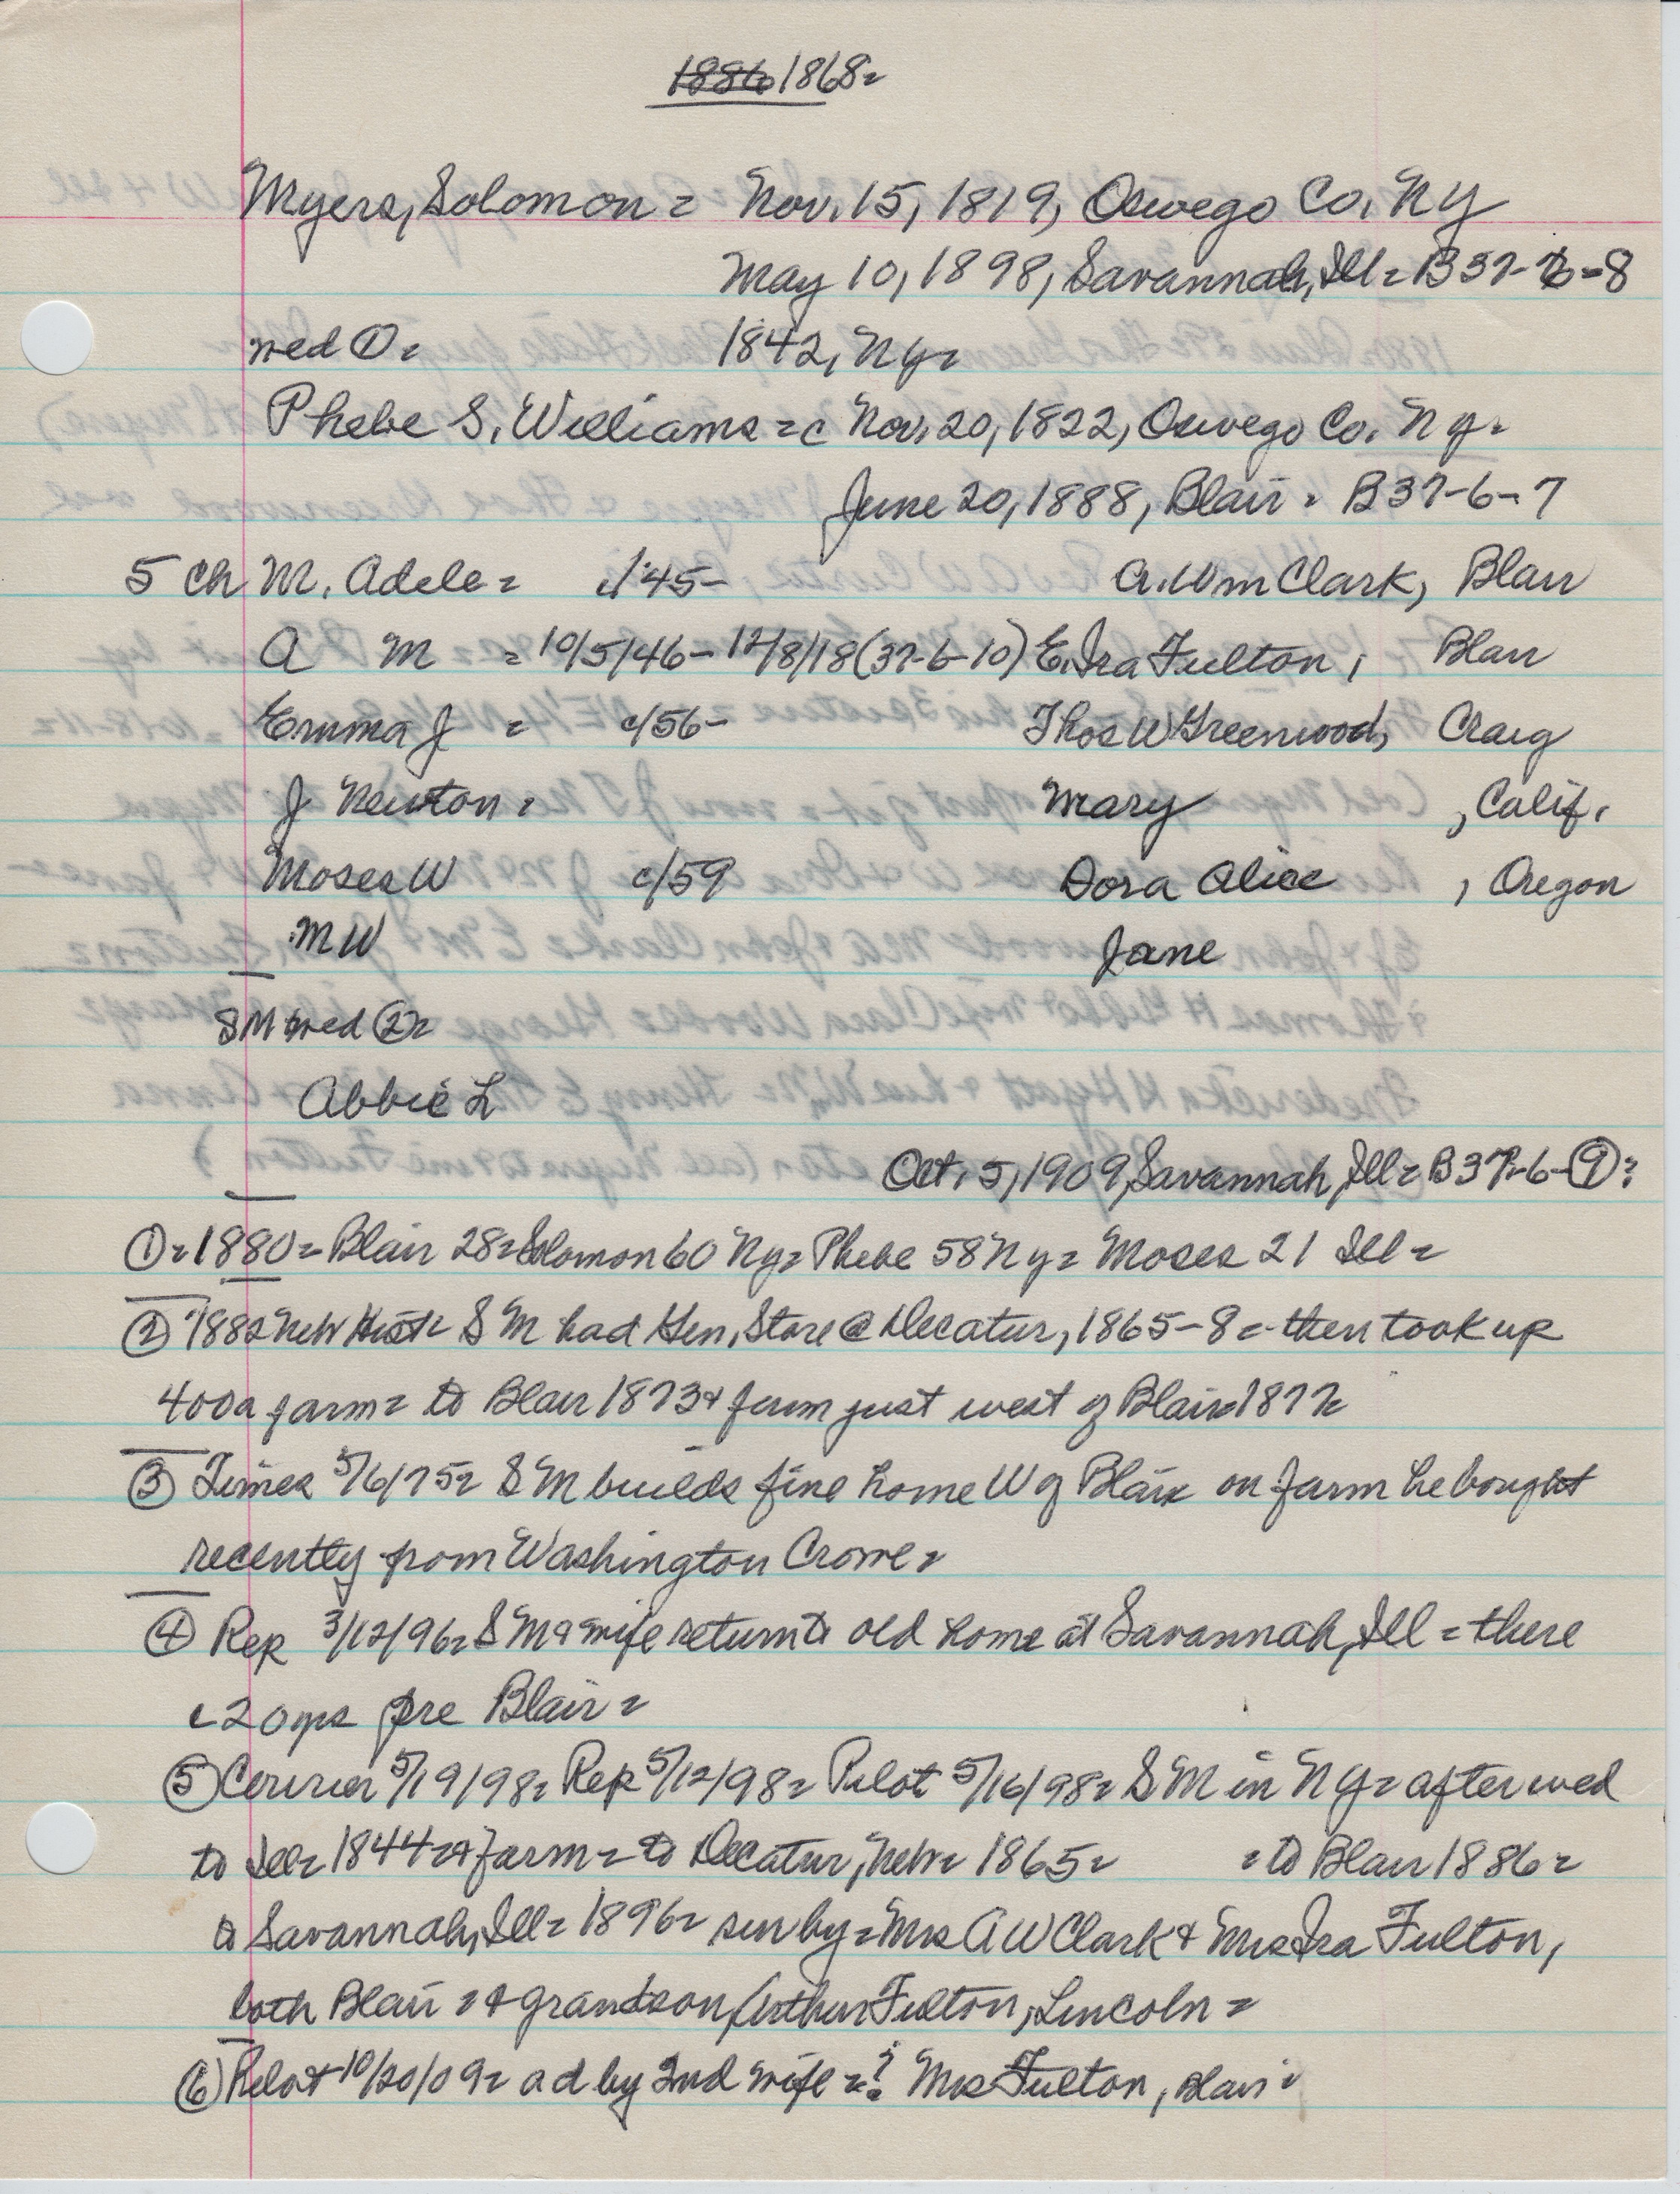 1886 1868=
Myers, Solomon = Nov. 15, 1819, Oswego Co, NY
May 10, 1898, Savannah, Ill = B 37-6-8
wed ① = 1842, Ny=
Phebe S, Williams = c Nov. 20, 1822, Oswego Co. Ny.
June 20, 1888, Blair = B37-6-7
5 ch M. Adele = c/45- A. Wm Clark, Blair
A M = 10/5/46-12/8/18 (37-6-10) E. Ira Fulton, Blair
Emma J = c/56- Thos W Greenwood, Craig
J Newton = Mary , Calif.
Moses W c/59 Dora Alice , Oregon
M W Jane
SM wed ②=
Abbie L
Oct. 5, 1909, Savannah, Ill = B37-6-⑨=
① = 1880 = Blair 28 = Solomon 60 Ny = Phebe 58 Ny = Moses 21 Ill =
② 1882 Neb Hist = S M had Gen. Store @ Decatur, 1865-8 = then took up
400a farm = to Blair 1873 & farm just west of Blair 1877=
③ Times 5/6/75= S M builds fine home W of Blair on farm he bought
recently from Washington Crowe=
④ Rep 3/12/96= S M & wife return to old home at Savannah, Ill = there
c20 yrs pre Blair =
⑤ Courier 5/19/98= Rep 5/12/98= Pilot 5/16/98= S M in Ny = after wed
to Ill= 1844 = & farm = to Decatur, Neb = 1865= = to Blair 1886=
to Savannah, Ill= 1896= sur by = Mrs A W Clark & Mrs Ira Fulton,
both Blair = & grandson, Arthur Fulton, Lincoln =
⑥ Pilot 10/20/09= ad by 2nd wife =? Mrs Fulton, Blair=